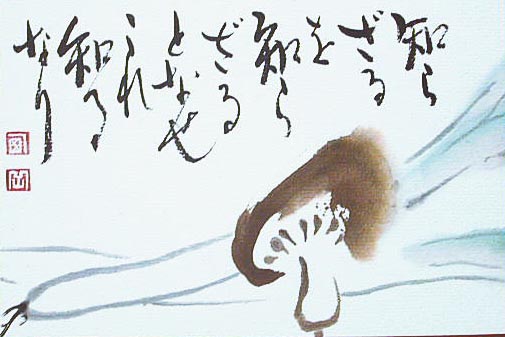 知ら
ざる
を
知ら
ざる
となせ
これ
知る
なり